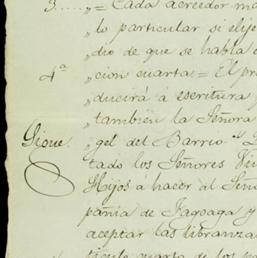 3.... „= Cada acreedor ma
„lo particular si elije
„dio de que se habla e
4ª „ción cuarta= El pr
„ducirá á escritura y
„tambien la Señora
Sigue. gel del Barrio "
tado los Señores Viu
Hijos á hacer al Sino
pañia de Fagoaga y
aceptar las libranza
tículo cuarto de los